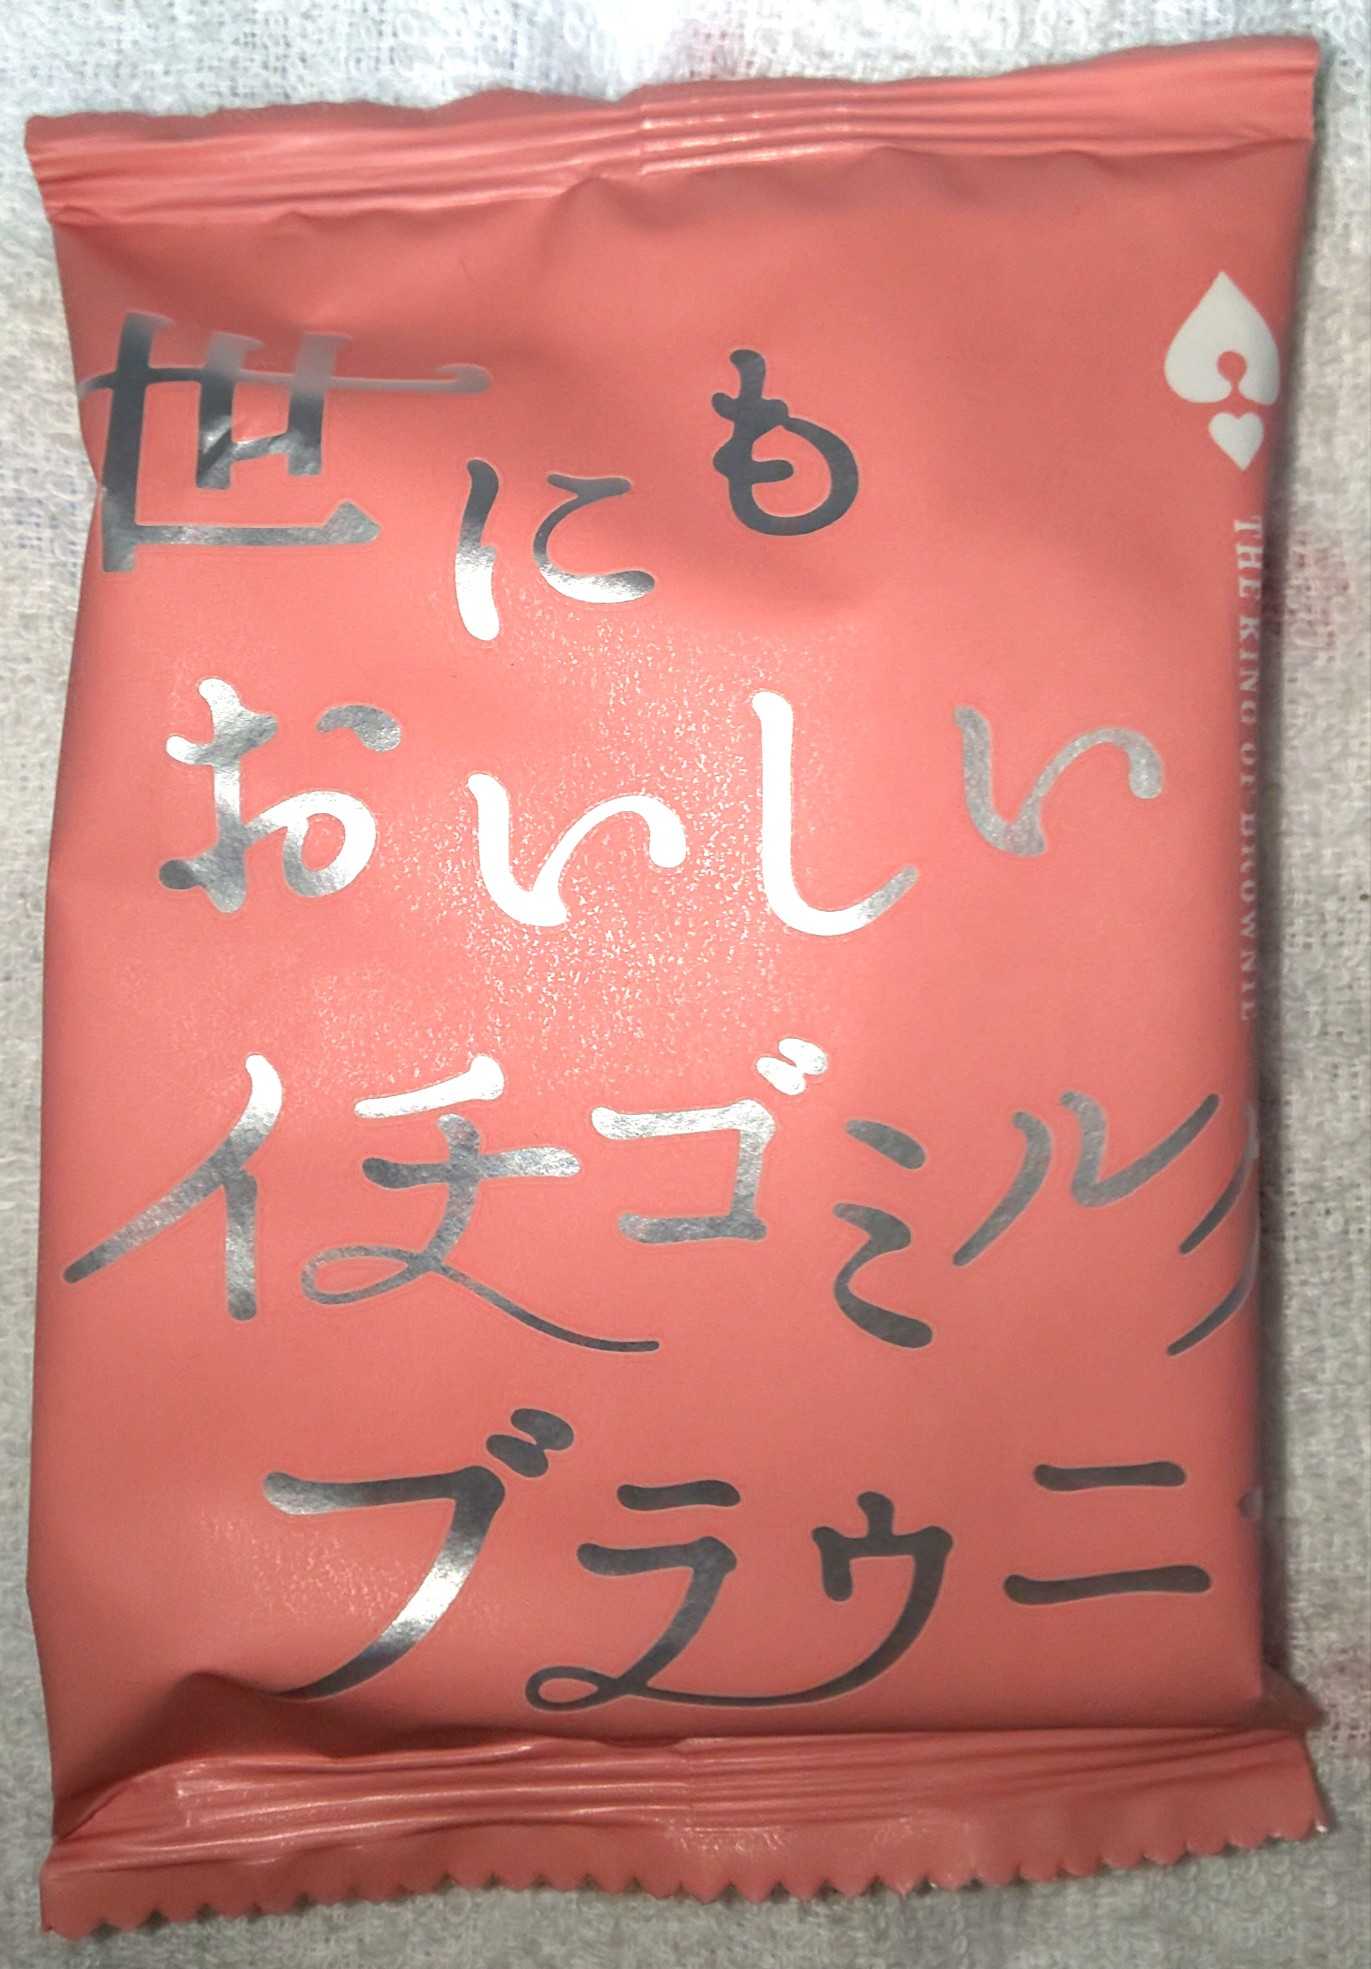 世にも
おいしい
イチゴミルク
ブラウニー
THE KING OF BROWNIE